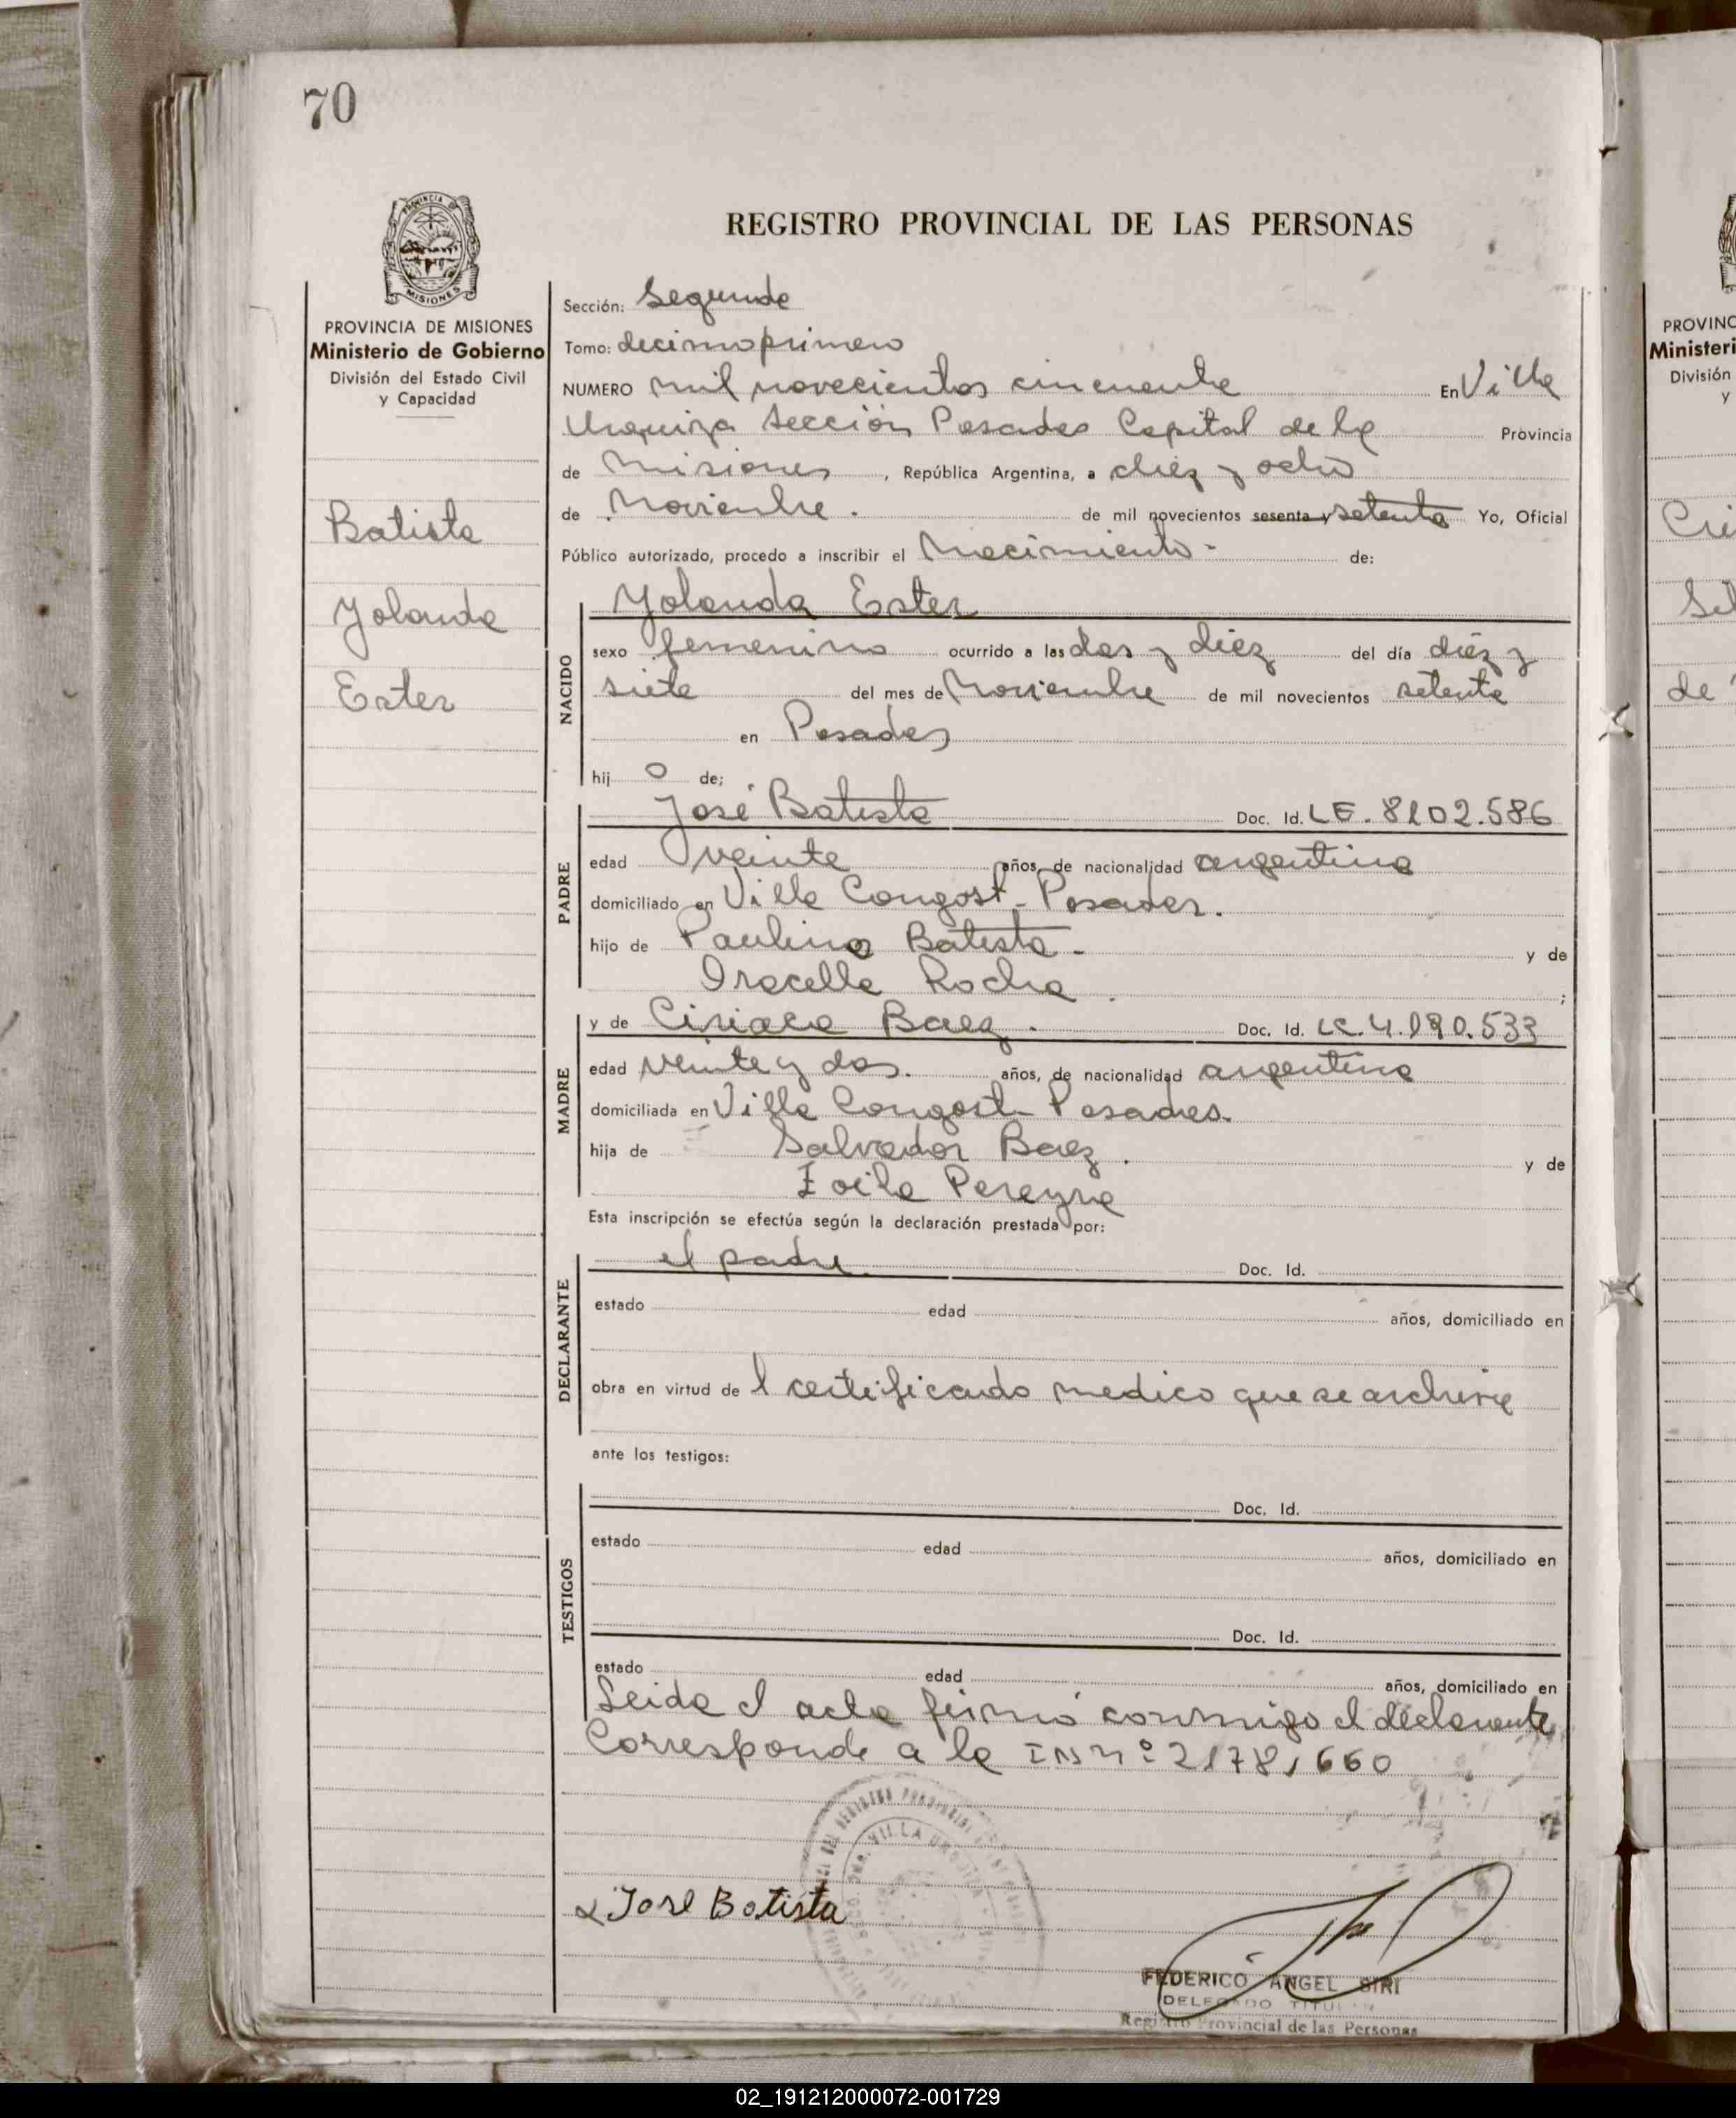 70
REGISTRO PROVINCIAL DE LAS PERSONAS
PROVINCIA DE MISIONES
Ministerio de Gobierno
División del Estado Civil
y Capacidad
Batista
Yolanda
Ester
Sección: Segunda
Tomo: decimoprimero
NUMERO mil novecientos cincuenta En Villa
Urquiza Sección Posadas Capital de la Provincia
de Misiones, República Argentina, a diez y ocho
de Noviembre. de mil novecientos sesenta y setenta Yo, Oficial
Público autorizado, procedo a inscribir el Nacimiento- de:
NACIDO
Yolanda Ester
sexo femenino ocurrido a las dos y diez del día diez y
siete del mes de Noviembre de mil novecientos setenta
en Posadas
hij o de;
PADRE
José Batista Doc. Id. LE. 8102.586
edad veinte años, de nacionalidad argentina
domiciliado en Villa Congost - Posadas.
hijo de Paulino Batista - y de
Iracella Rocha . ;
MADRE
y de Ciriaca Baez . Doc. Id. LC. 4.190.533
edad veinte y dos. años, de nacionalidad argentina
domiciliada en Villa Congost - Posadas.
hija de Salvador Baez . y de
Zoila Pereyra
Esta inscripción se efectúa según la declaración prestada por:
DECLARANTE
el padre Doc. Id.
estado edad años, domiciliado en
obra en virtud de l certificado medico que se archiva
ante los testigos:
TESTIGOS
Doc. Id.
estado edad años, domiciliado en
Doc. Id.
estado edad años, domiciliado en
Leida el acta firmó conmigo el declarante
Corresponde a la IN nº 2178,660
José Batista
FEDERICO ANGEL SIRI
DELEGADO TITULAR
Registro Provincial de las Personas
PROVINC
Ministeri
División
y
02_191212000072-001729